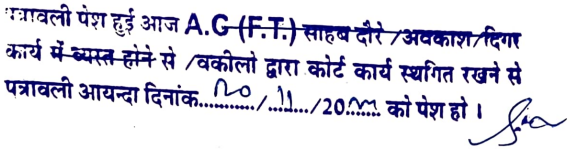 पत्रावली पेश हुई आज A.G (F.T.) साहब दौरे /अवकाश/दिगर
कार्य में व्यस्त होने से /वकीलो द्वारा कोर्ट कार्य स्थगित रखने से
पत्रावली आयन्दा दिनांक.......20/11/20..... को पेश हो ।